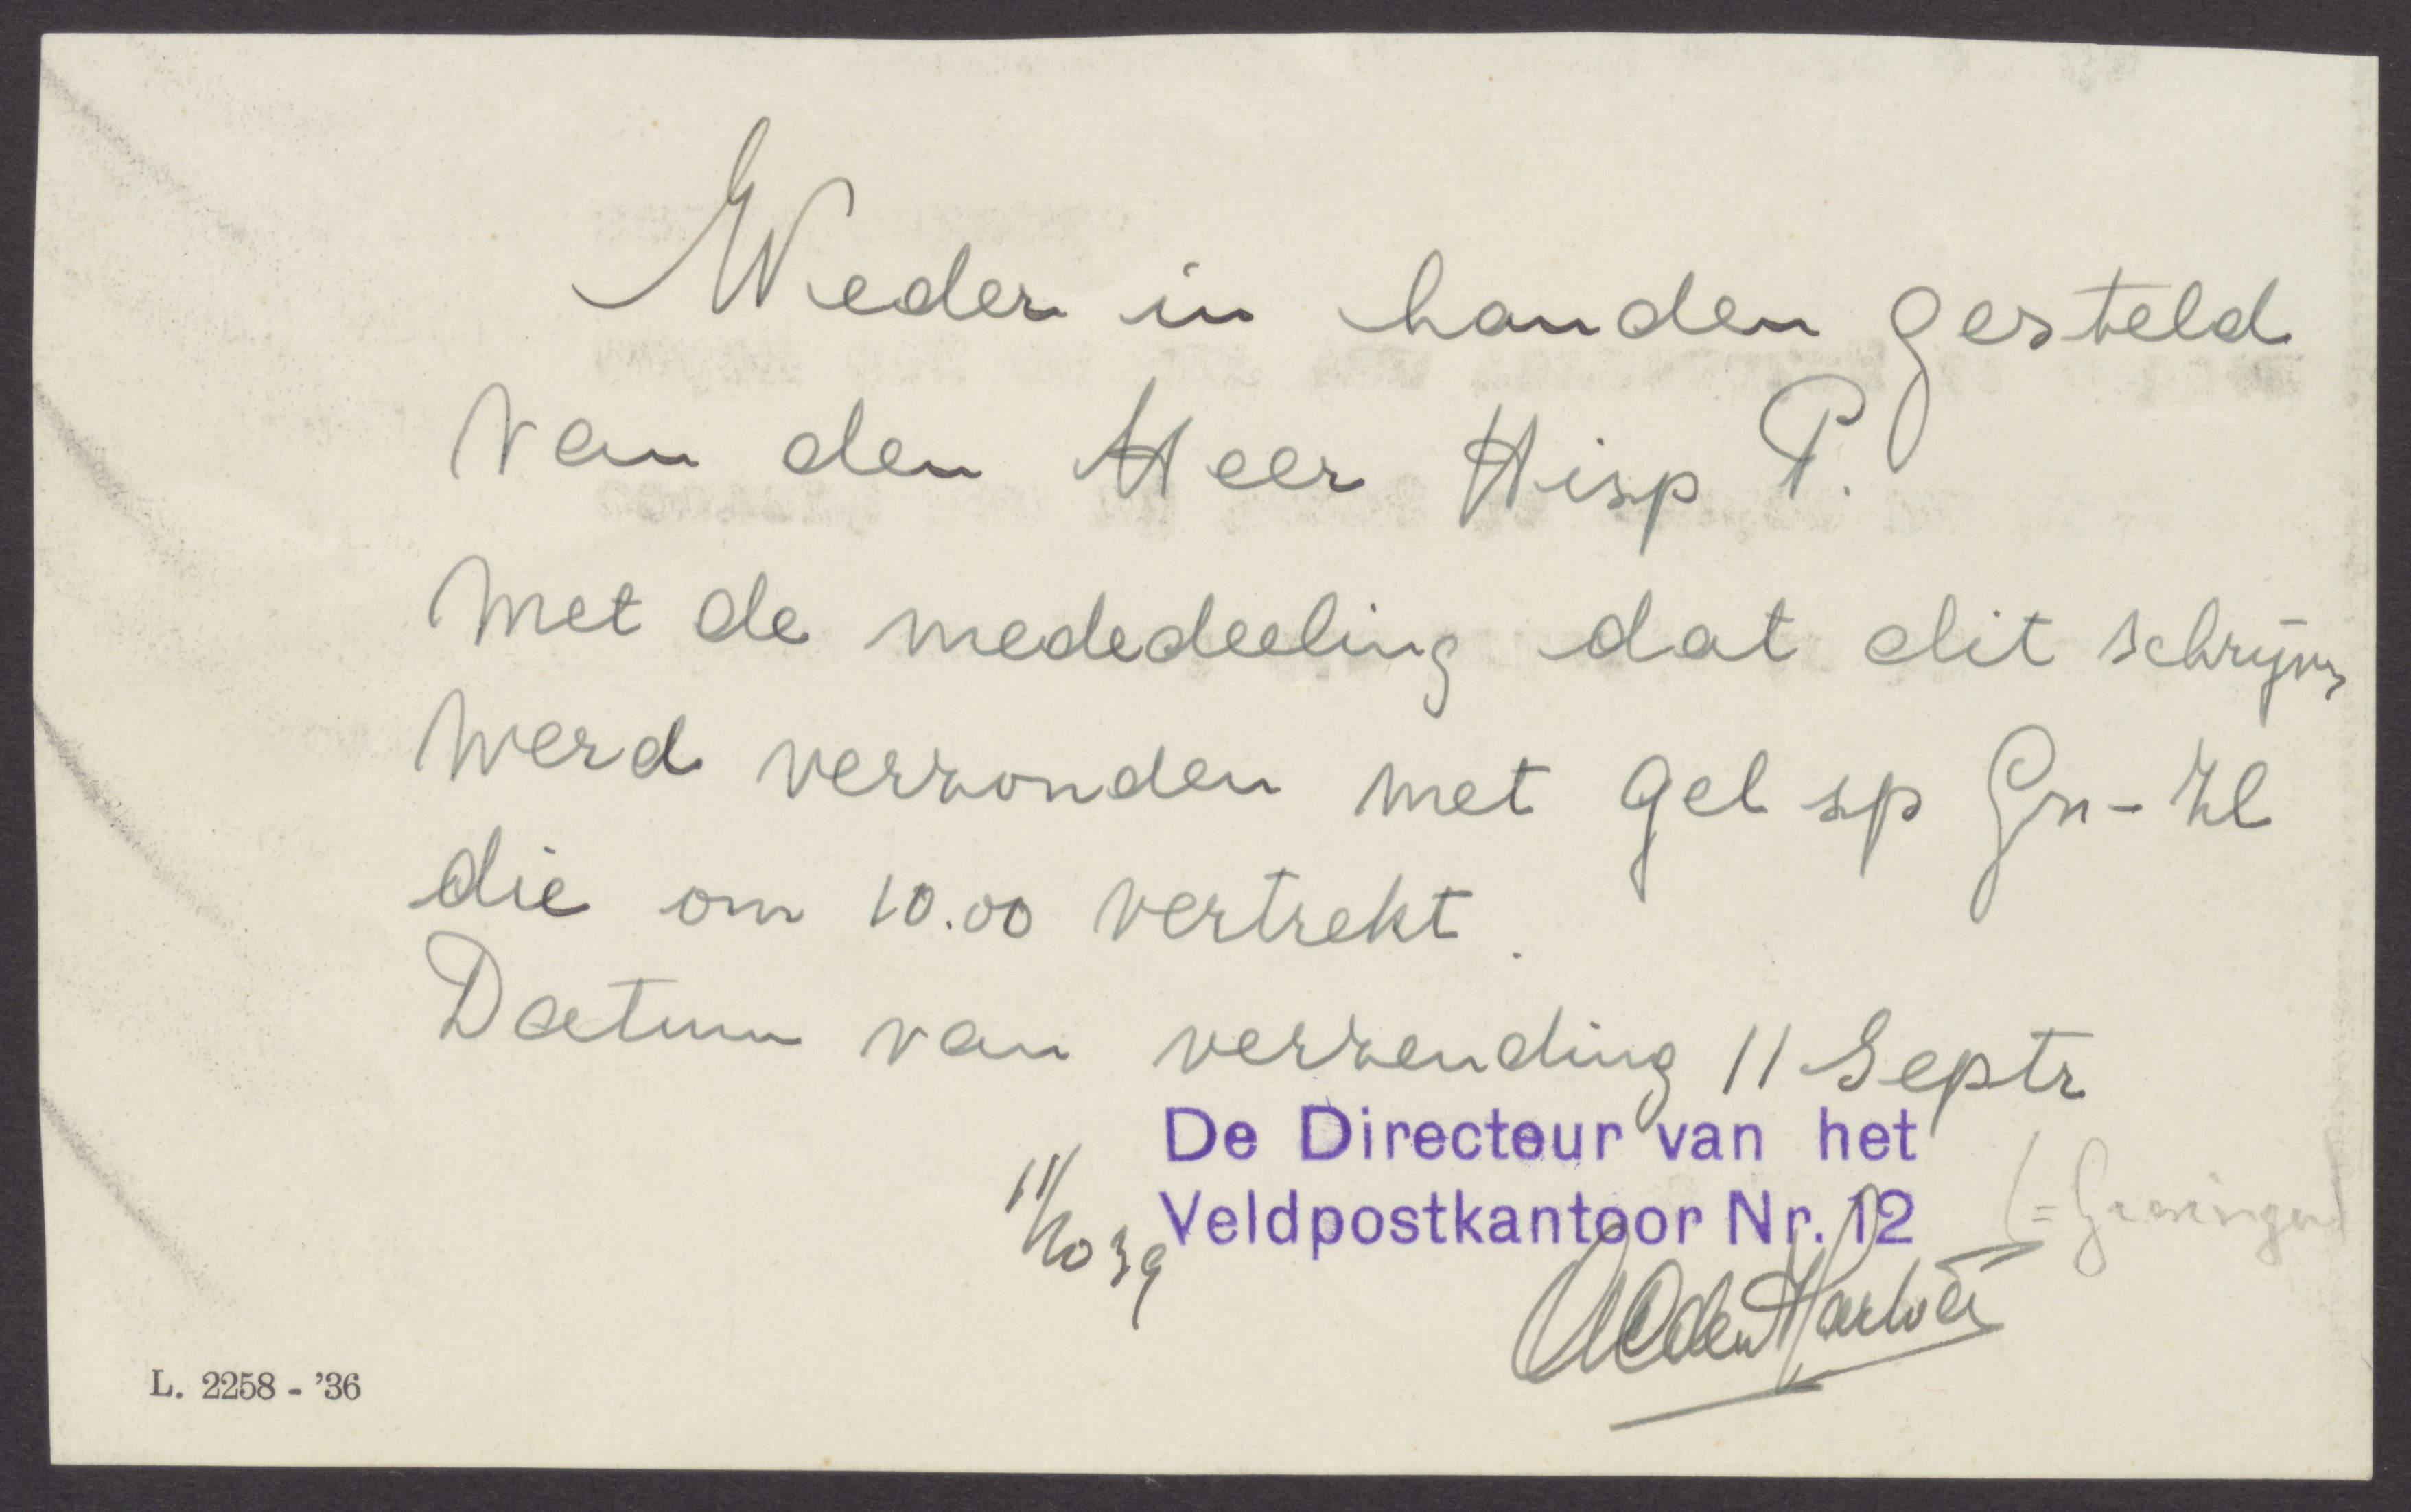 Weder in handen gesteld
van den Heer Hisp P.
met de mededeeling dat dit schrijven
werd verzonden met gel sp Gn-Zl
die om 10.00 vertrekt.
Datum van verzending 11 Septr
De Directeur van het
Veldpostkantoor Nr. 12
(= Groningen)
11/10 39
L. 2258 - '36